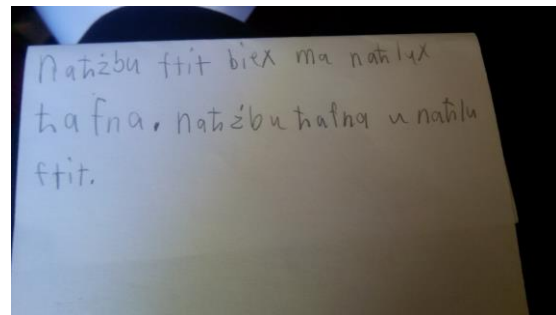 Naħżbu ftit biex ma naħlux
ħafna. naħżbu ħafna u naħlu
ftit.